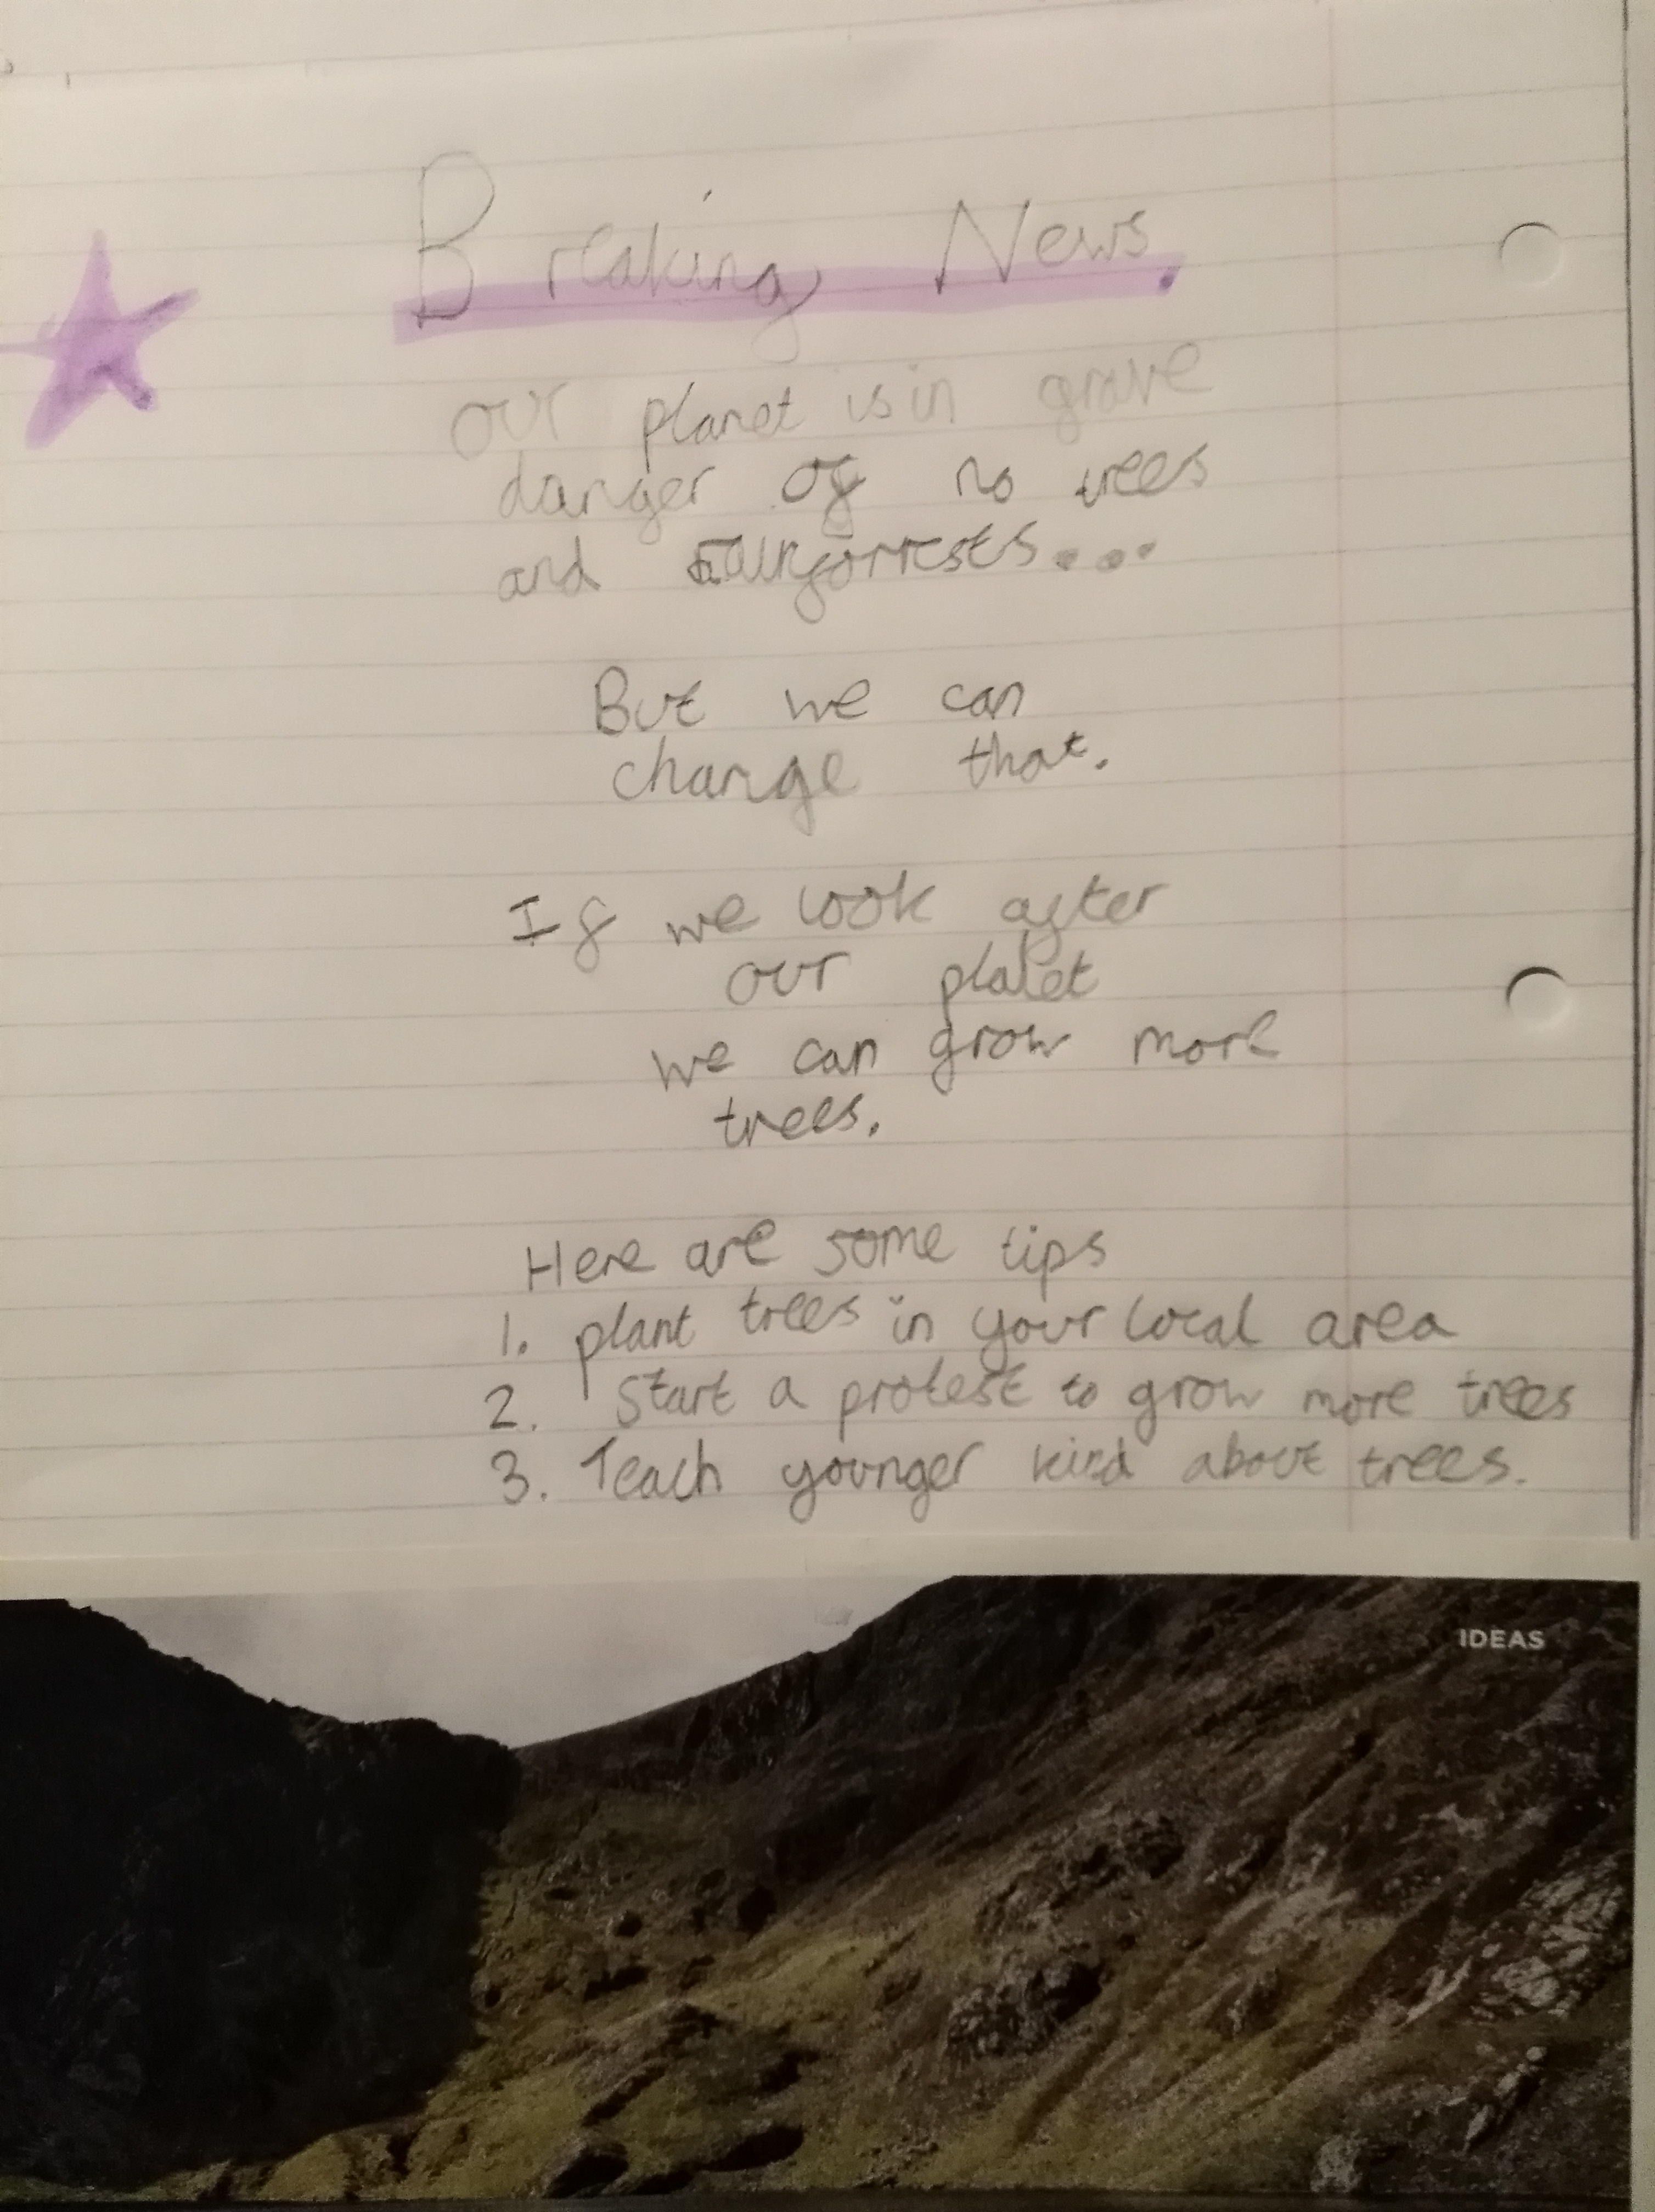 Breaking News.
our planet is in grave
danger of no trees
and
But we can
change that.
If we look after
our planet
we can grow more
trees.
Here are some tips
1. plant trees in your local area
2. Start a protest to grow more trees
3. Teach younger kind about trees.
IDEAS